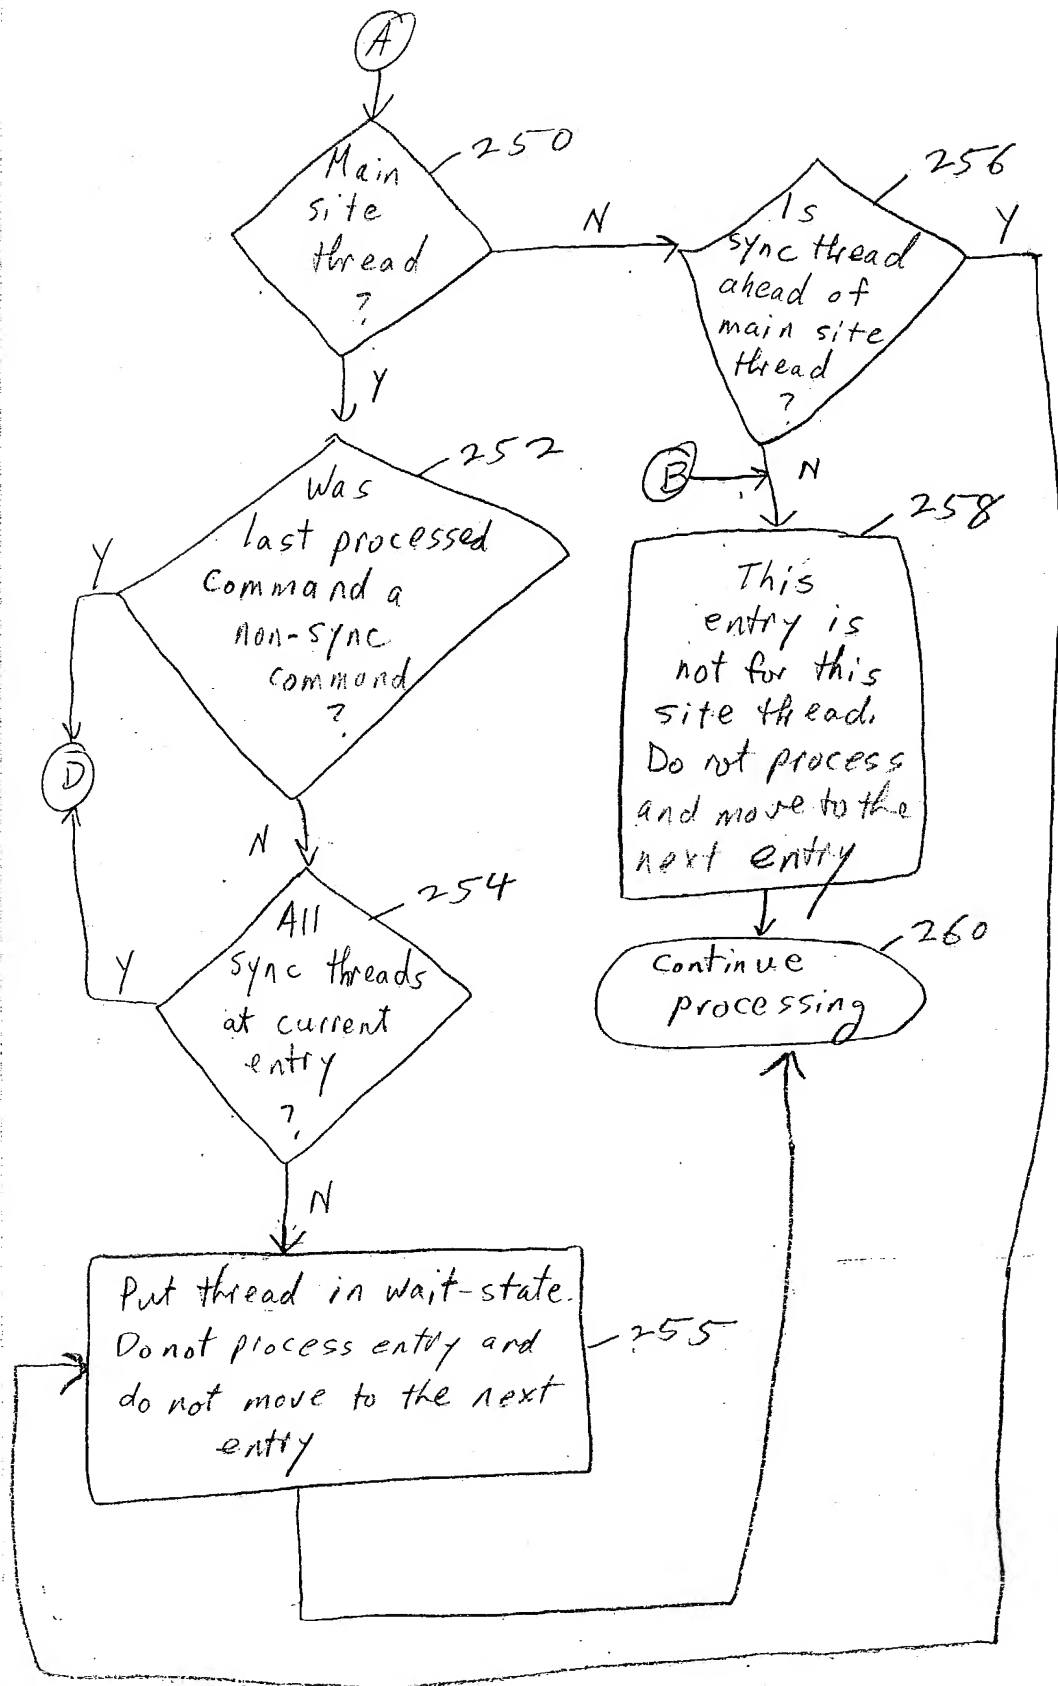 A
250
Main
site
thread
?
N
Y
256
Is
sync thread
ahead of
main site
thread
?
Y
N
B
252
Was
last processed
Command a
non-sync
command
?
Y
N
D
258
This
entry is
not for this
site thread.
Do not process
and move to the
next entry
254
All
sync threads
at current
entry
?
Y
N
260
Continue
processing
Put thread in wait-state.
Do not process entry and
do not move to the next
entry
255